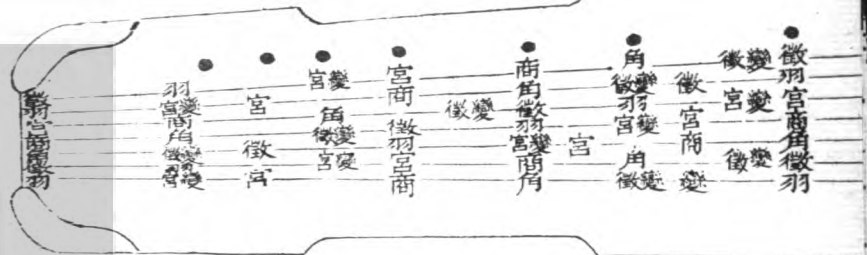 徵羽宮商角徵羽
變徵 變宮 變徵
徵 宮商 變
角變徵羽變宮 角變徵
宮
商角徵羽變宮商角
變徵
宮商 徵羽宮商
變宮 角變徵變宮
宮 徵 宮
羽變宮商角變徵 變宮
徵羽宮商角徵羽